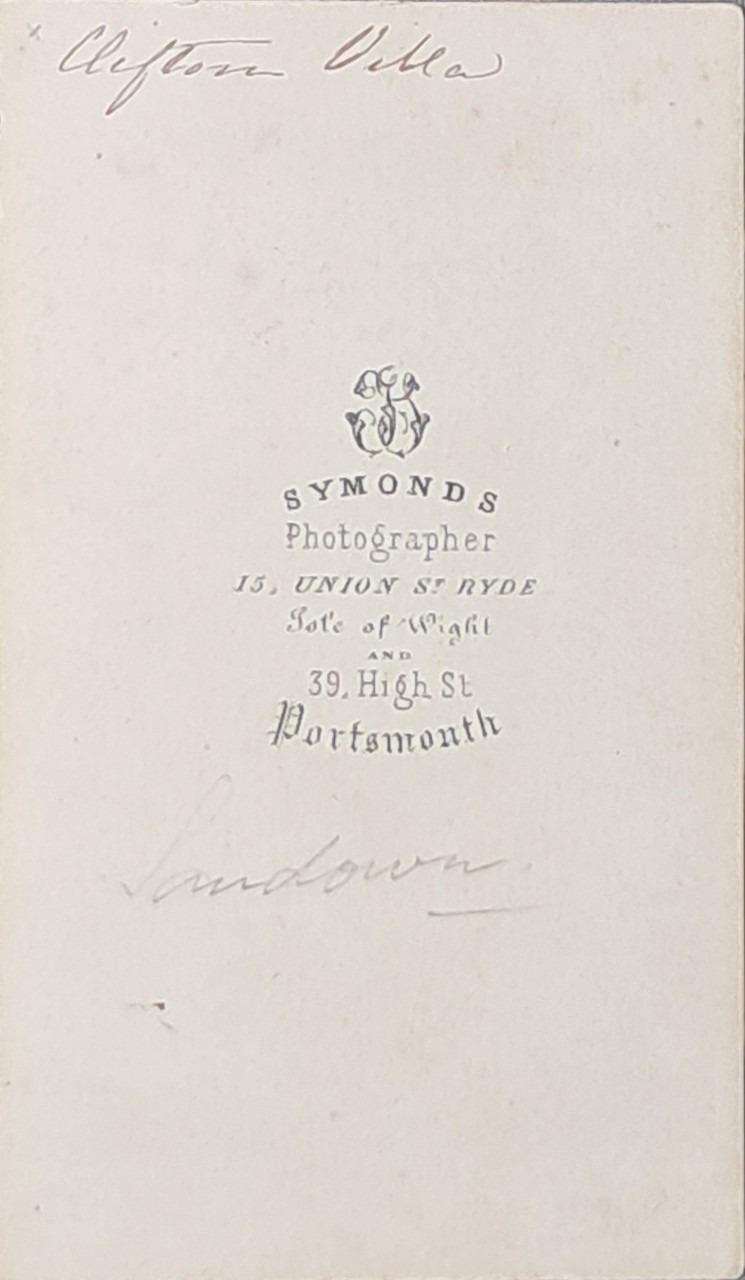 Clifton Villa
SYMONDS
Photographer
15, UNION ST RYDE
Isle of Wight
AND
39, High St
Portsmouth
Sandown